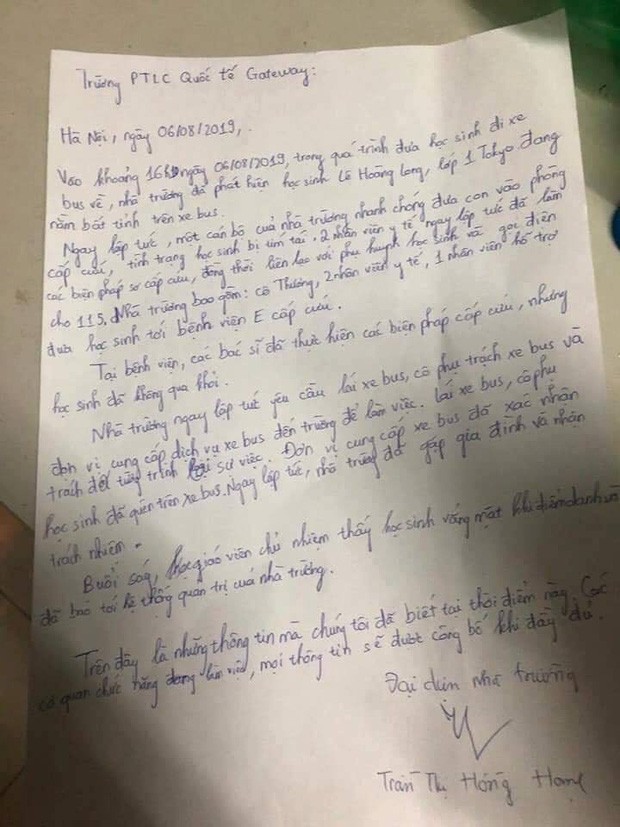 Trường PTLC Quốc tế Gateway:
Hà Nội, ngày 06/08/2019,.
Vào khoảng 16h ngày 06/08/2019, trong quá trình đưa học sinh đi xe
bus về, nhà trường đã phát hiện học sinh Lê Hoàng Long, lớp 1 Tokyo đang
nằm bất tỉnh trên xe bus.
Ngay lập tức, một cán bộ của nhà trường nhanh chóng đưa con vào phòng
cấp cứu, tình trạng học sinh bị tím tái, 2 nhân viên y tế ngay lập tức đã làm
các biện pháp sơ cấp cứu, đồng thời liên lạc với phụ huynh học sinh và gọi điện
cho 115. Nhà trường bao gồm: cô Thương, 2 nhân viên y tế, 1 nhân viên hỗ trợ
đưa học sinh tới bệnh viện E cấp cứu.
Tại bệnh viện, các bác sĩ đã thực hiện các biện pháp cấp cứu, nhưng
học sinh đã không qua khỏi.
Nhà trường ngay lập tức yêu cầu lái xe bus, cô phụ trách xe bus và
đơn vị cung cấp dịch vụ xe bus đến trường để làm việc. Lái xe bus, cô phụ
trách để tường trình lại sự việc. Đơn vị cung cấp xe bus đã xác nhận
học sinh đã quên trên xe bus. Ngay lập tức, nhà trường đã gặp gia đình và nhận
trách nhiệm.
Buổi sáng, giáo viên chủ nhiệm thấy học sinh vắng mặt khi điểm danh và
đã báo tới hệ thống quản trị của nhà trường.
Trên đây là những thông tin mà chúng tôi đã biết tại thời điểm này. Các
cơ quan chức năng đang làm việc, mọi thông tin sẽ được công bố khi đầy đủ.
Đại diện nhà trường
Trần Thị Hồng Hạnh